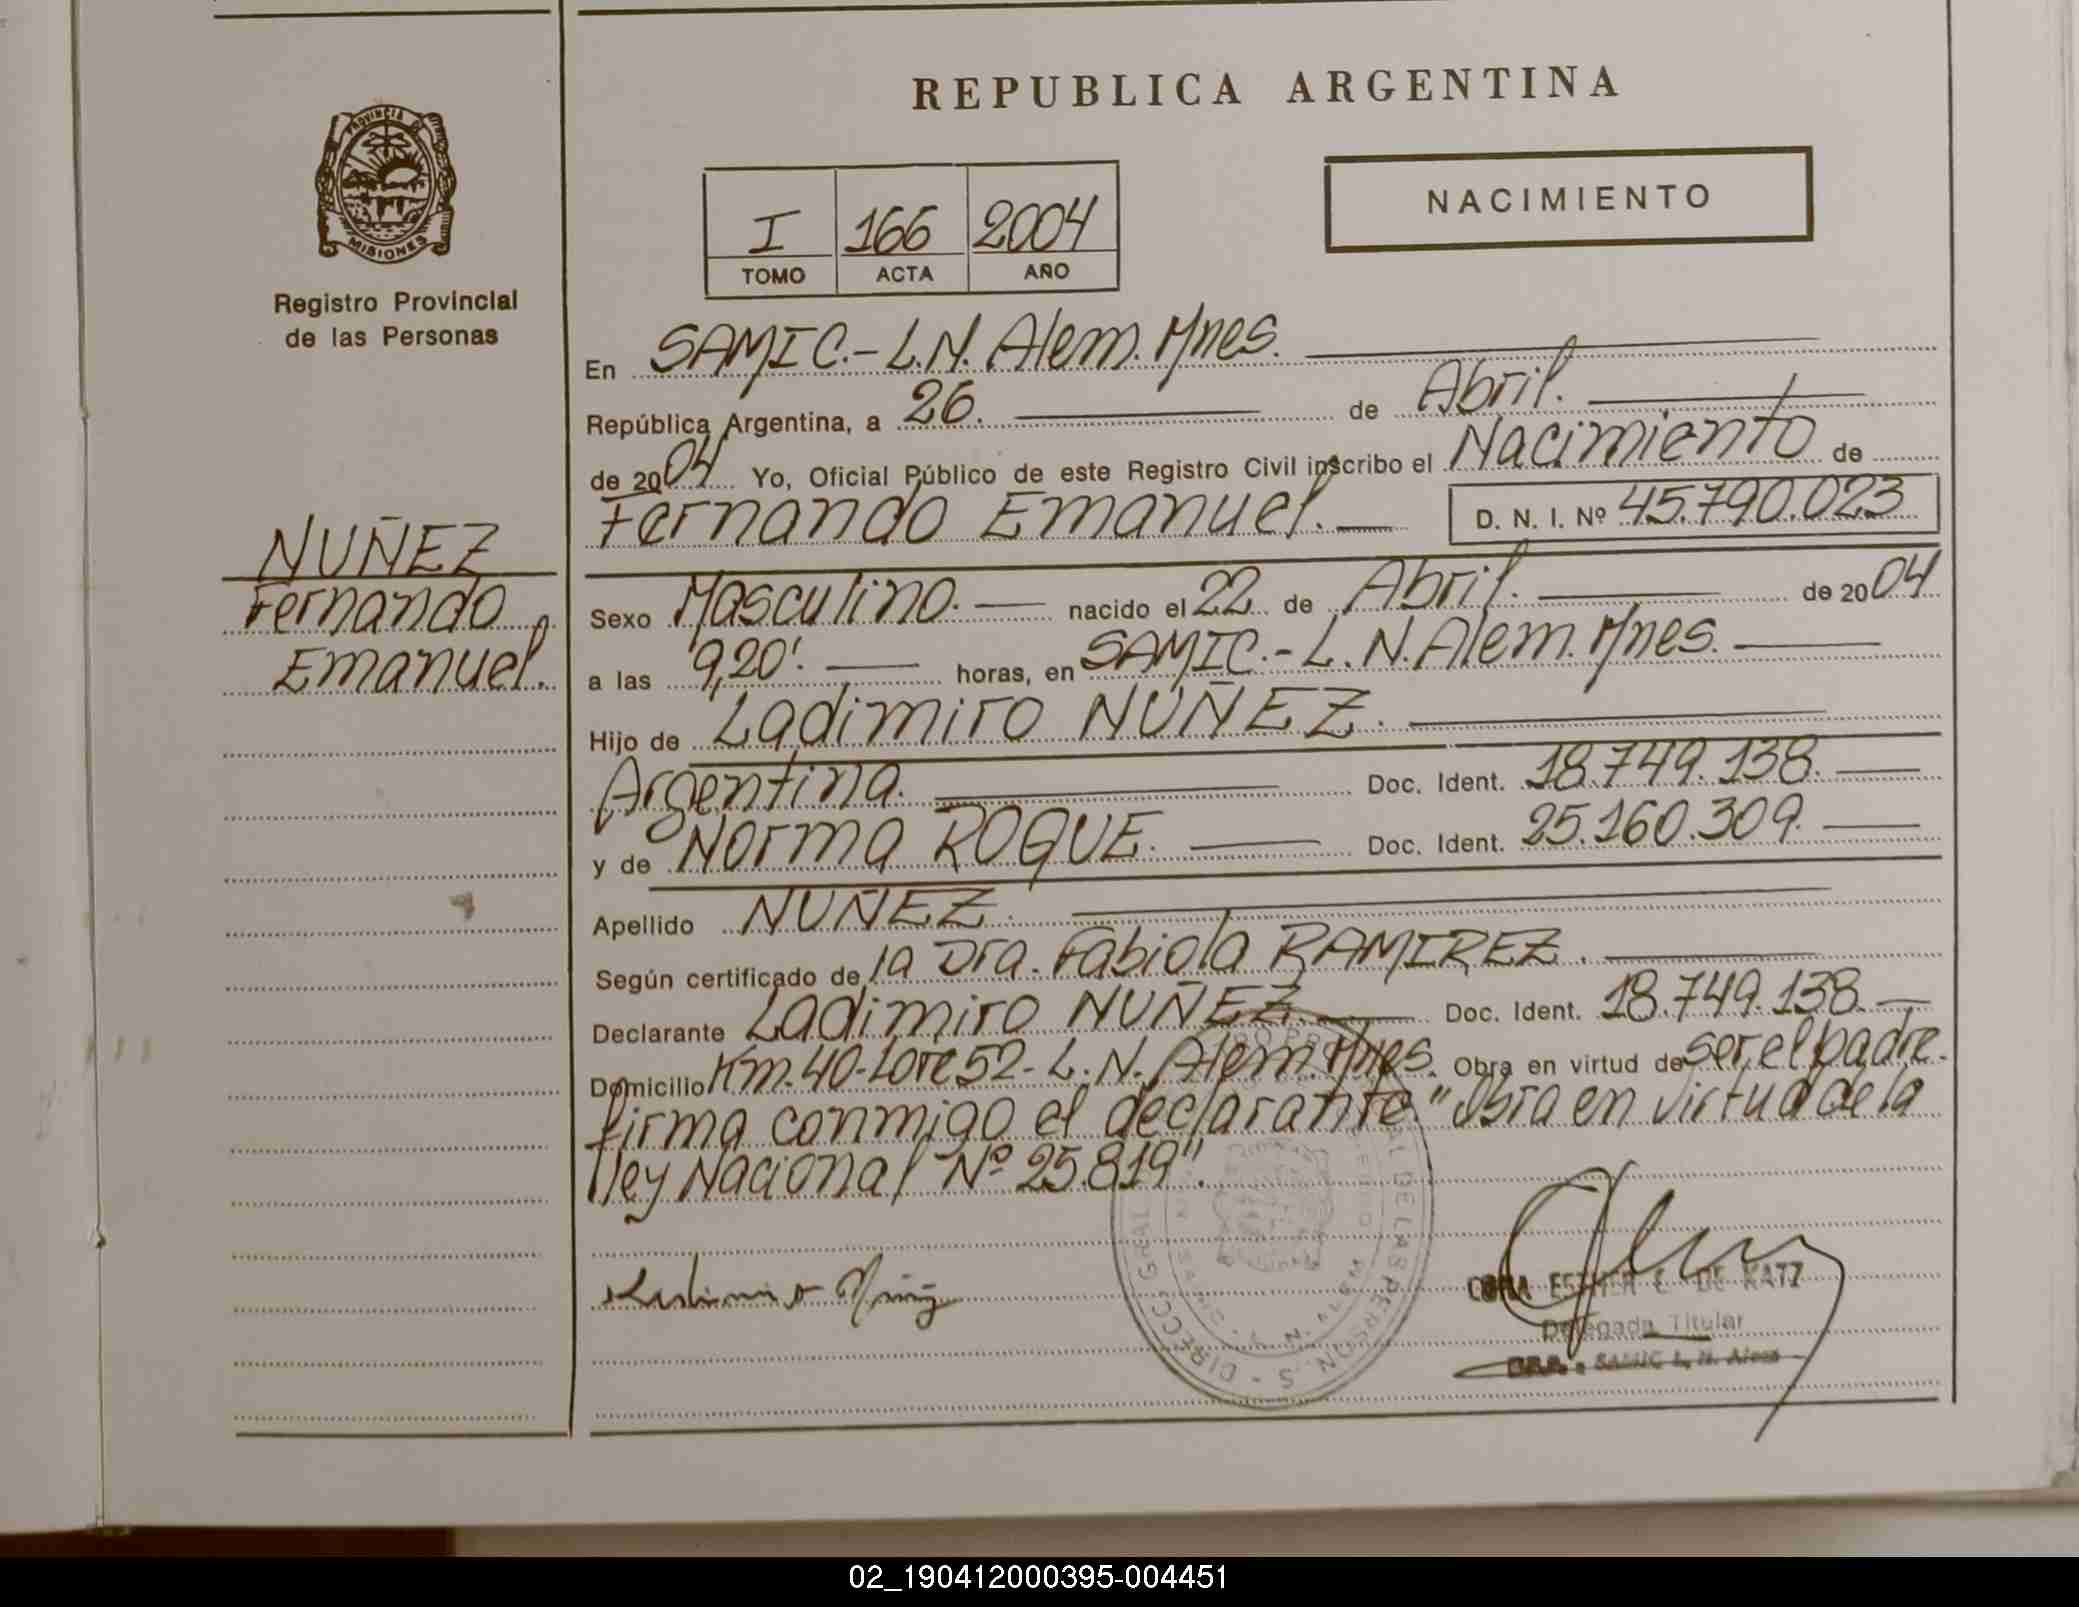 REPUBLICA ARGENTINA
PROVINCIA DE
MISIONES
Registro Provincial
de las Personas
NACIMIENTO
I 166 2004
TOMO ACTA AÑO
En SAMIC.- L.N. Alem. Mnes.
República Argentina, a 26. de Abril.
de 2004 Yo, Oficial Público de este Registro Civil inscribo el Nacimiento de
Fernando Emanuel. D. N. I. Nº 45.790.023
NUÑEZ
Fernando
Emanuel.
Sexo Masculino. nacido el 22 de Abril. de 2004
a las 9,20'. horas, en SAMIC.- L.N. Alem. Mnes.
Hijo de Ladimiro NUÑEZ.
Argentina. Doc. Ident. 18.749.138.
y de Norma ROQUE. Doc. Ident. 25.160.309.
Apellido NUÑEZ.
Según certificado de la Dra. Fabiola RAMIREZ.
Declarante Ladimiro NUÑEZ. Doc. Ident. 18.749.138.
Domicilio Km.40-Lote 52- L.N. Alem. Mnes. Obra en virtud de ser el padre.
firma conmigo el declarante. "Obra en virtud de la
ley Nacional Nº 25.819".
Ladimiro Nuñez
ESTHER E. DE KATZ
Delegada Titular
SAMIC L. N. Alem
02_190412000395-004451